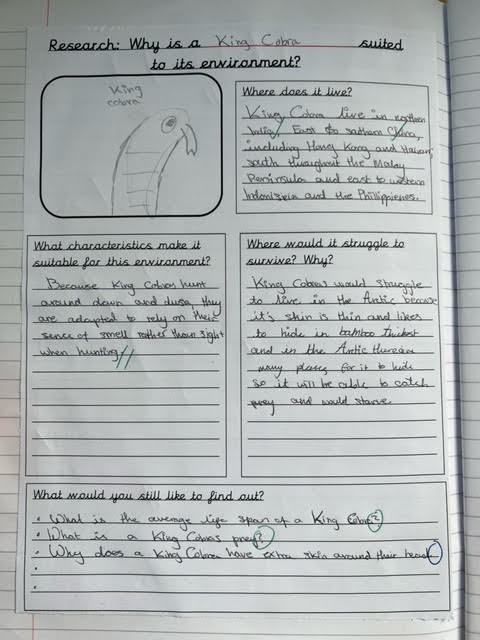 Research: Why is a King Cobra suited
to its environment?
King
cobra
Where does it live?
King Cobra live in northern
India, East to southern China,
including Hong Kong and Hainan,
south throughout the Malay
Peninsula and east to western
Indonisein and the Phillipienes.
What characteristics make it
suitable for this environment?
Because King Cobras hunt
around dawn and dusg, they
are adapted to rely on their
sense of smell rather than sight
when hunting
Where would it struggle to
survive? Why?
King Cobras would struggle
to live in the Artic because
it's skin is thin and likes
to hide in bamboo thickest
and in the Artic
many places for it to hide
so it will be able to catch
prey and would starve.
What would you still like to find out?
• What is the average life span of a King Cobra?
• What is a King Cobras prey?
• Why does a King Cobra have extra skin around their head
•
•